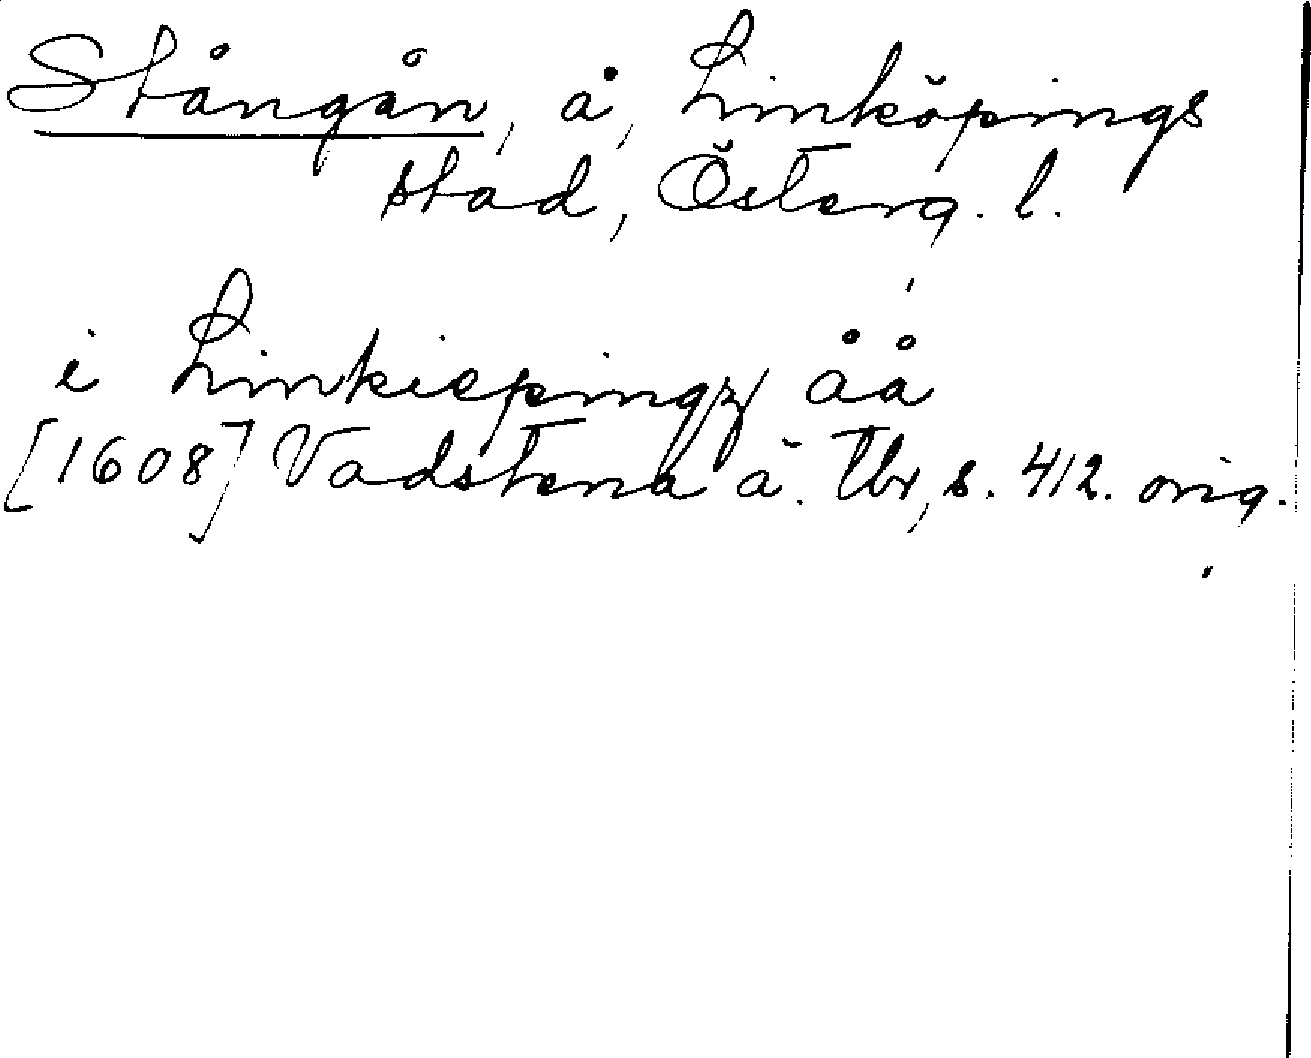 Stångån, å, Linköpings
stad, Österg. l.
i Linkiepingz åå
[1608] Vadstena ä. Tbr, s. 412. orig.